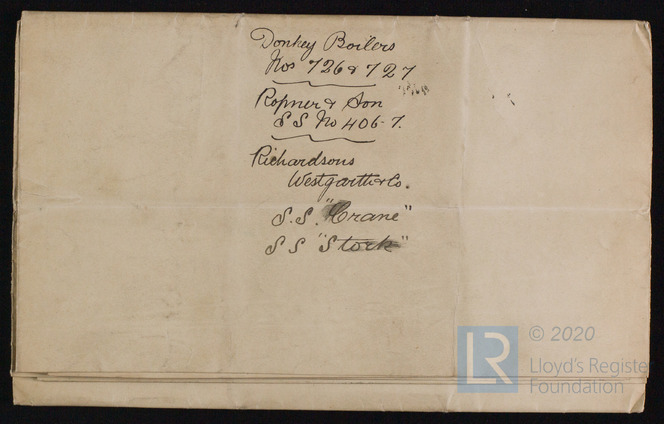 Donkey Boilers
Nos 726 & 727
Ropner & Son
S S No 406-7.
Richardsons
Westgarth & Co.
S.S. "Crane"
S S "Stork"
LR
© 2020
Lloyd's Register
Foundation